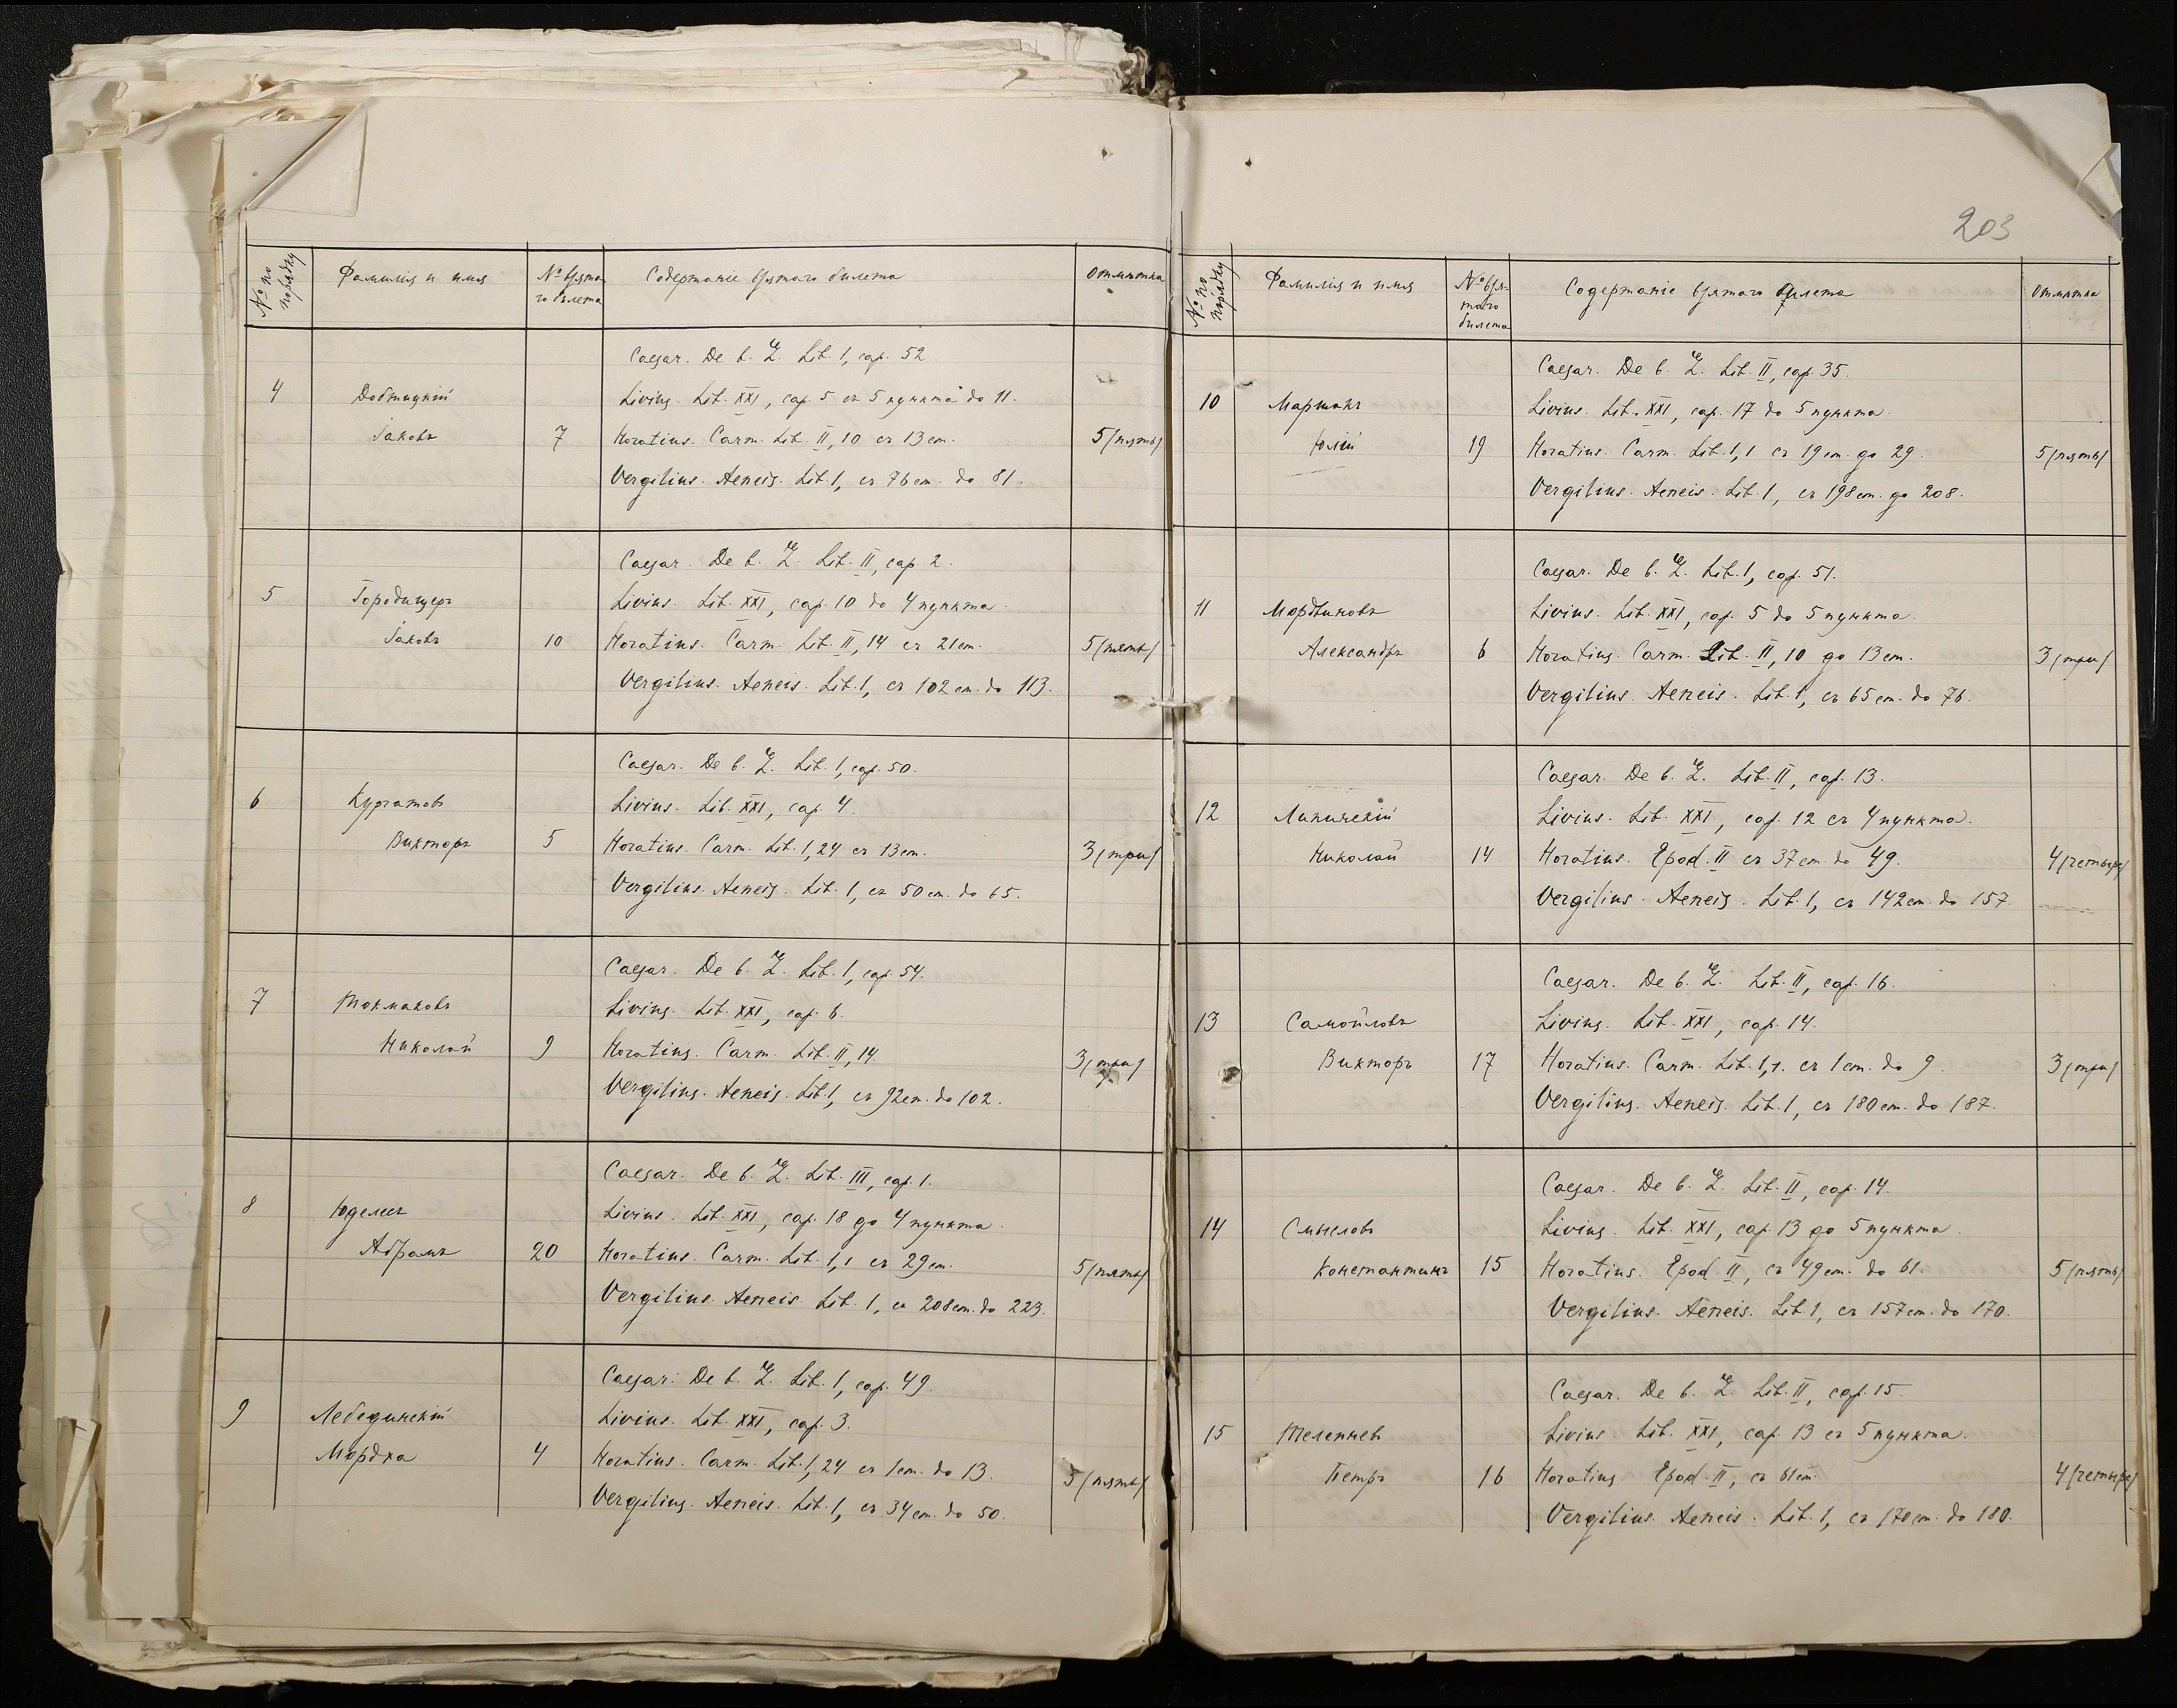 № по порядку
Фамилія и имя
№ взятаго билета
Содержаніе взятаго билета
Отмѣтка
Caesar. De b. G. Lib. I, cap. 52.
4 Livius. Lib. XXI, cap. 5 съ 5 пункта до 11.
Іаковъ 7 Horatius. Carm. Lib. II, 10 съ 13 ст. 5 (пять)
Vergilius. Aeneis. Lib. I, съ 76 ст. до 81.
Caesar. De b. G. Lib. II, cap. 2.
5 Городищеръ Livius. Lib. XXI, cap. 10 до 4 пункта.
Іаковъ 10 Horatius. Carm. Lib. II, 14 съ 21 ст. 5 (пять)
Vergilius. Aeneis. Lib. I, съ 102 ст. до 113.
Caesar. De b. G. Lib. I, cap. 50.
6 Livius. Lib. XXI, cap. 4.
Викторъ 5 Horatius. Carm. Lib. I, 24 съ 13 ст. 3 (три)
Vergilius. Aeneis. Lib. I, съ 50 ст. до 65.
Caesar. De b. G. Lib. I, cap. 54.
7 Токмаковъ Livius. Lib. XXI, cap. 6.
Николай 9 Horatius. Carm. Lib. II, 14. 3 (три)
Vergilius. Aeneis. Lib. I, съ 92 ст. до 102.
Caesar. De b. G. Lib. III, cap. 1.
8 Livius. Lib. XXI, cap. 18 до 4 пункта.
Абрамъ 20 Horatius. Carm. Lib. I, 1 съ 29 ст. 5 (пять)
Vergilius. Aeneis. Lib. I, съ 208 ст. до 223.
Caesar. De b. G. Lib. I, cap. 49.
9 Лебединскій Livius. Lib. XXI, cap. 3.
Мордха 4 Horatius. Carm. Lib. I, 24 съ 1 ст. до 13. 5 (пять)
Vergilius. Aeneis. Lib. I, съ 34 ст. до 50.
203
№ по порядку
Фамилія и имя
№ взятаго билета
Содержаніе взятаго билета
Отмѣтка
Caesar. De b. G. Lib. II, cap. 35.
10 Маршакъ Livius. Lib. XXI, cap. 17 до 5 пункта.
Юлій 19 Horatius. Carm. Lib. I, 1 съ 19 ст. до 29. 5 (пять)
Vergilius. Aeneis. Lib. I, съ 198 ст. до 208.
Caesar. De b. G. Lib. I, cap. 51.
11 Мордвиновъ Livius. Lib. XXI, cap. 5 до 5 пункта.
Александръ 6 Horatius. Carm. Lib. II, 10 до 13 ст. 3 (три)
Vergilius. Aeneis. Lib. I, съ 65 ст. до 76.
Caesar. De b. G. Lib. II, cap. 13.
12 Липинскій Livius. Lib. XXI, cap. 12 съ 4 пункта.
Николай 14 Horatius. Epod. II съ 37 ст. до 49. 4 (четыре)
Vergilius. Aeneis. Lib. I, съ 142 ст. до 157.
Caesar. De b. G. Lib. II, cap. 16.
13 Самойловъ Livius. Lib. XXI, cap. 14.
Викторъ 17 Horatius. Carm. Lib. I, 1. съ 1 ст. до 9. 3 (три)
Vergilius. Aeneis. Lib. I, съ 180 ст. до 187.
Caesar. De b. G. Lib. II, cap. 14.
14 Смысловъ Livius. Lib. XXI, cap. 13 до 5 пункта.
Константинъ 15 Horatius. Epod. II, съ 49 ст. до 61. 5 (пять)
Vergilius. Aeneis. Lib. I, съ 157 ст. до 170.
Caesar. De b. G. Lib. II, cap. 15.
15 Телепневъ Livius. Lib. XXI, cap. 13 съ 5 пункта.
Петръ 16 Horatius. Epod. II, съ 61 ст. 4 (четыре)
Vergilius. Aeneis. Lib. I, съ 170 ст. до 180.